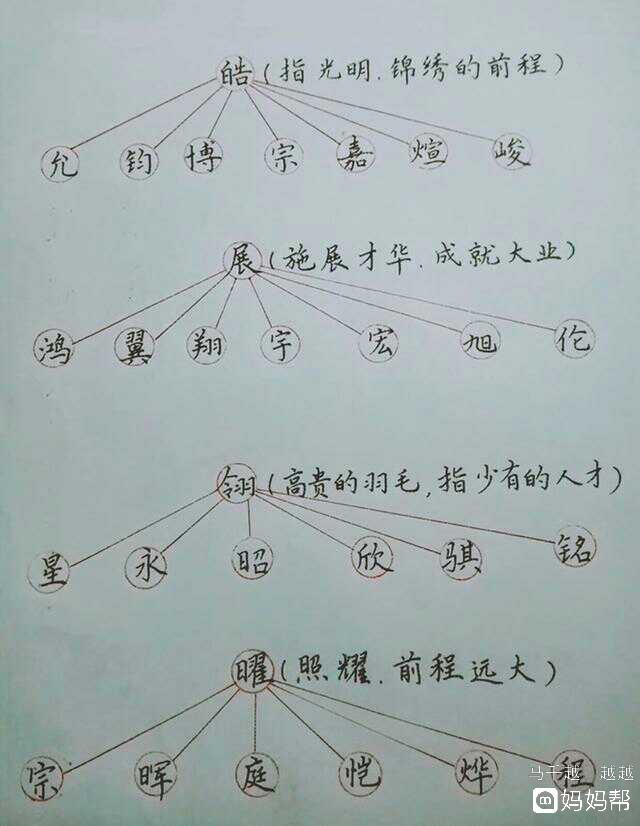 皓（指光明.锦绣的前程）
允 钧 博 宗 嘉 煊 峻
展（施展才华.成就大业）
鸿 翼 翔 宇 宏 旭 伦
翎（高贵的羽毛,指少有的人才）
星 永 昭 欣 骐 铭
曜（照耀.前程远大）
宗 晖 庭 恺 烨 程
马千越 越越
妈妈帮